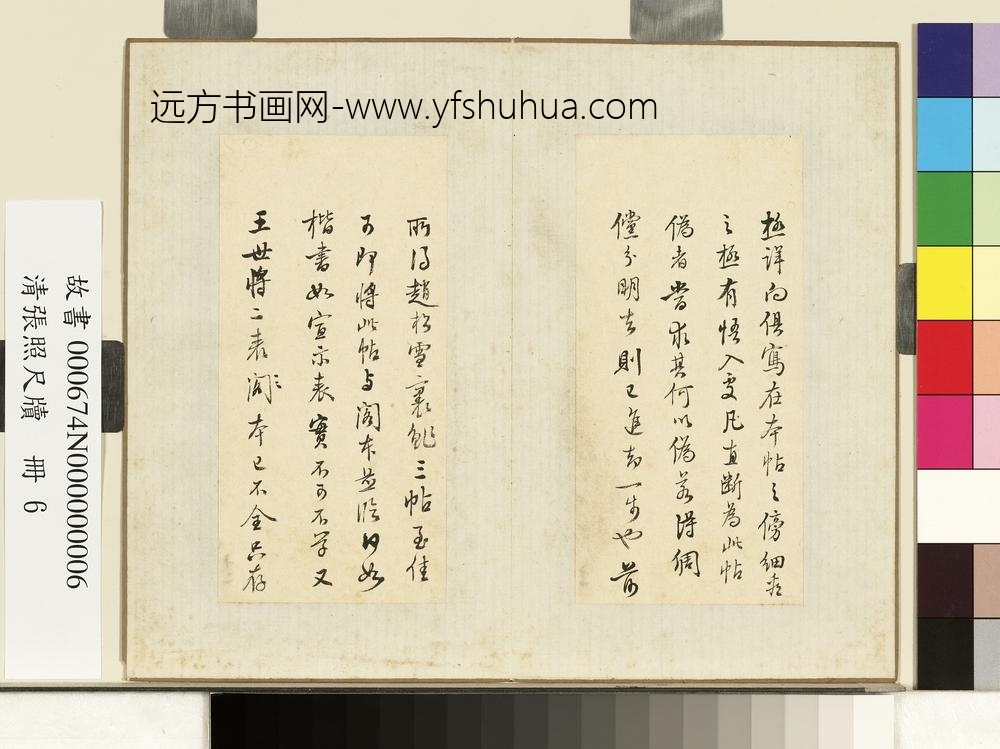 远方书画网-www.yfshuhua.com
極詳向俱寫在本帖之傍細查
之極有悟入處凡直斷為此帖
偽者當求其何以偽若得個
儻分明去則已進却一步也前
所得趙松雪裹鮓三帖至佳
可即將此帖与閣本並臨何如
楷書如宣示表實不可不学又
王世將二表閣本已不全只存
故書 000674N000000006
清張照尺牘 冊 6